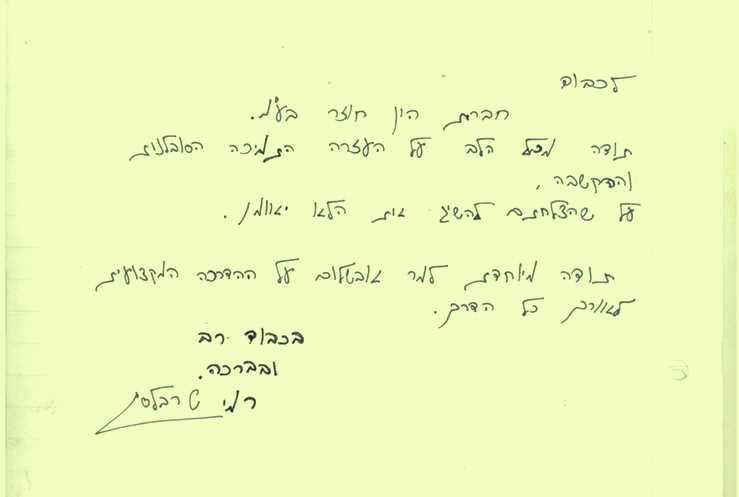 לכבוד
חברת הון חוזר בע"מ.
תודה מכל הלב על העזרה התמיכה הסובלנית
והקשבה,
על שהצלחתם להשיג את הלא יאומן.
תודה מיוחדת למר אבשלום על ההדרכה המקצועית
לאורך כל הדרך.
בכבוד רב
ובברכה.
רמי